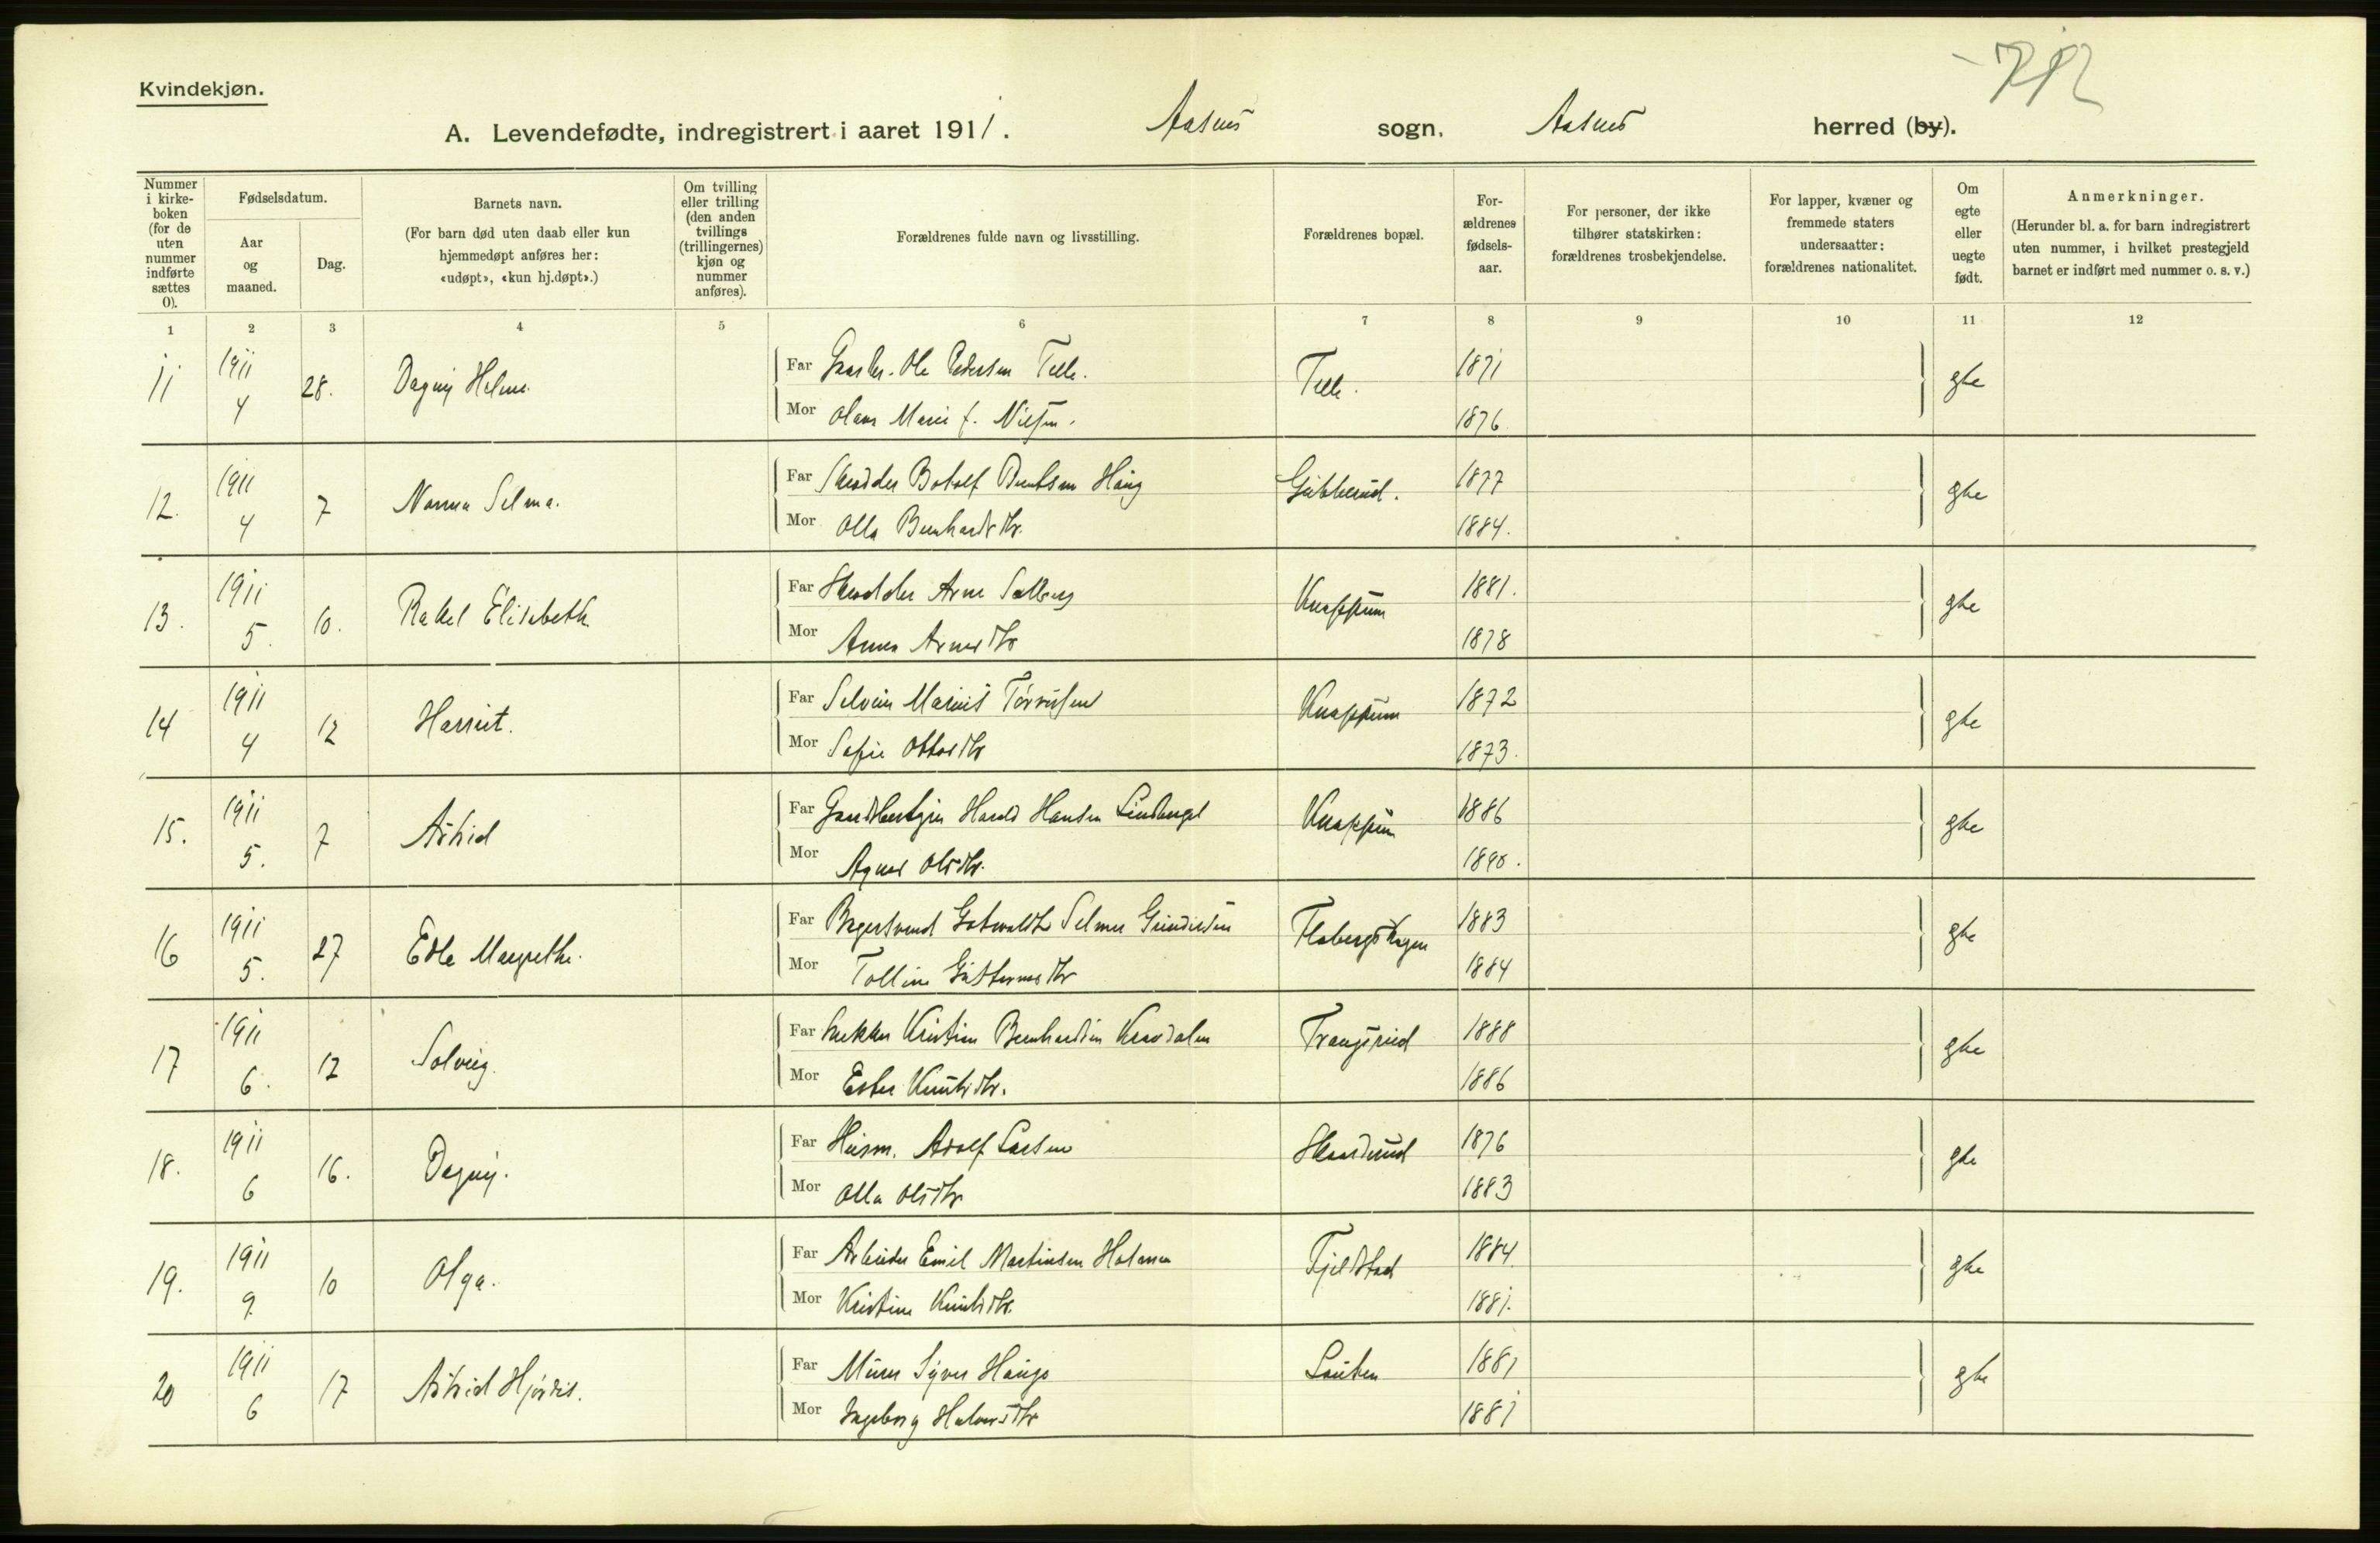 Kvindekjøn.
A. Levendefødte, indregistrert i aaret 1911. Aasnes sogn. Aasnes herred (by).
Nummer i kirkeboken (for de uten nummer indførte sættes 0).
Fødselsdatum.
Aar og maaned.
Dag.
Barnets navn.
(For barn død uten daab eller kun hjemmedøpt anføres her: «udøpt», «kun hj.døpt».)
Om tvilling eller trilling (den anden tvillings (trillingernes) kjøn og nummer anføres).
Forældrenes fulde navn og livsstilling.
Forældrenes bopæl.
For-ældrenes fødsels-aar.
For personer, der ikke tilhører statskirken: forældrenes trosbekjendelse.
For lapper, kvæner og fremmede staters undersaatter: forældrenes nationalitet.
Om egte eller uegte født.
Anmerkninger.
(Herunder bl. a. for barn indregistrert uten nummer, i hvilket prestegjeld barnet er indført med nummer o. s. v.)
1 2 3 4 5 6 7 8 9 10 11 12
11 1911 4 28. Dagny Helene
Far Ole Pedersen Telle. Telle. 1871 gte
Mor Olava Marie f. Nilsen. 1876
12. 1911 4 7 Nanna Selma.
Far Skrædder Botolf Berntsen Haug 1877 gte
Mor Olla Bernhardsdtr. 1884.
13. 1911 5. 10. Rakel Elisabeth
Far Arne Solberg Knappum 1881. gte
Mor Anna Arnesdtr 1878
14 1911 4 12 Harriet.
Far Marius Knappum 1872 gte
Mor Sofie Ottosdtr 1873.
15. 1911 5. 7 Astrid
Far Harald Hansen Knappum 1886 gte
Mor Agnes Olsdtr. 1890.
16 1911 5. 27 Edle Margrethe.
Far Selmer 1883 gte
Mor 1884
17 1911 6. 12 Solveig.
Far Kristian Bernhardsen 1888 gte
Mor Ester Knutsdtr. 1886
18. 1911 6 16. Dagny.
Far Husm. Adolf Larsen 1876 gte
Mor Olla Olsdtr 1883
19. 1911 9. 10 Olga.
Far Arbeider Emil Martinsen Fjeldstad 1884. gte
Mor Kristine Knutsdtr. 1881.
20 1911 6 17 Astrid Hjørdis.
Far Murer Syver Haugo 1881 gte
Mor Ingeborg Halvorsdtr 1881